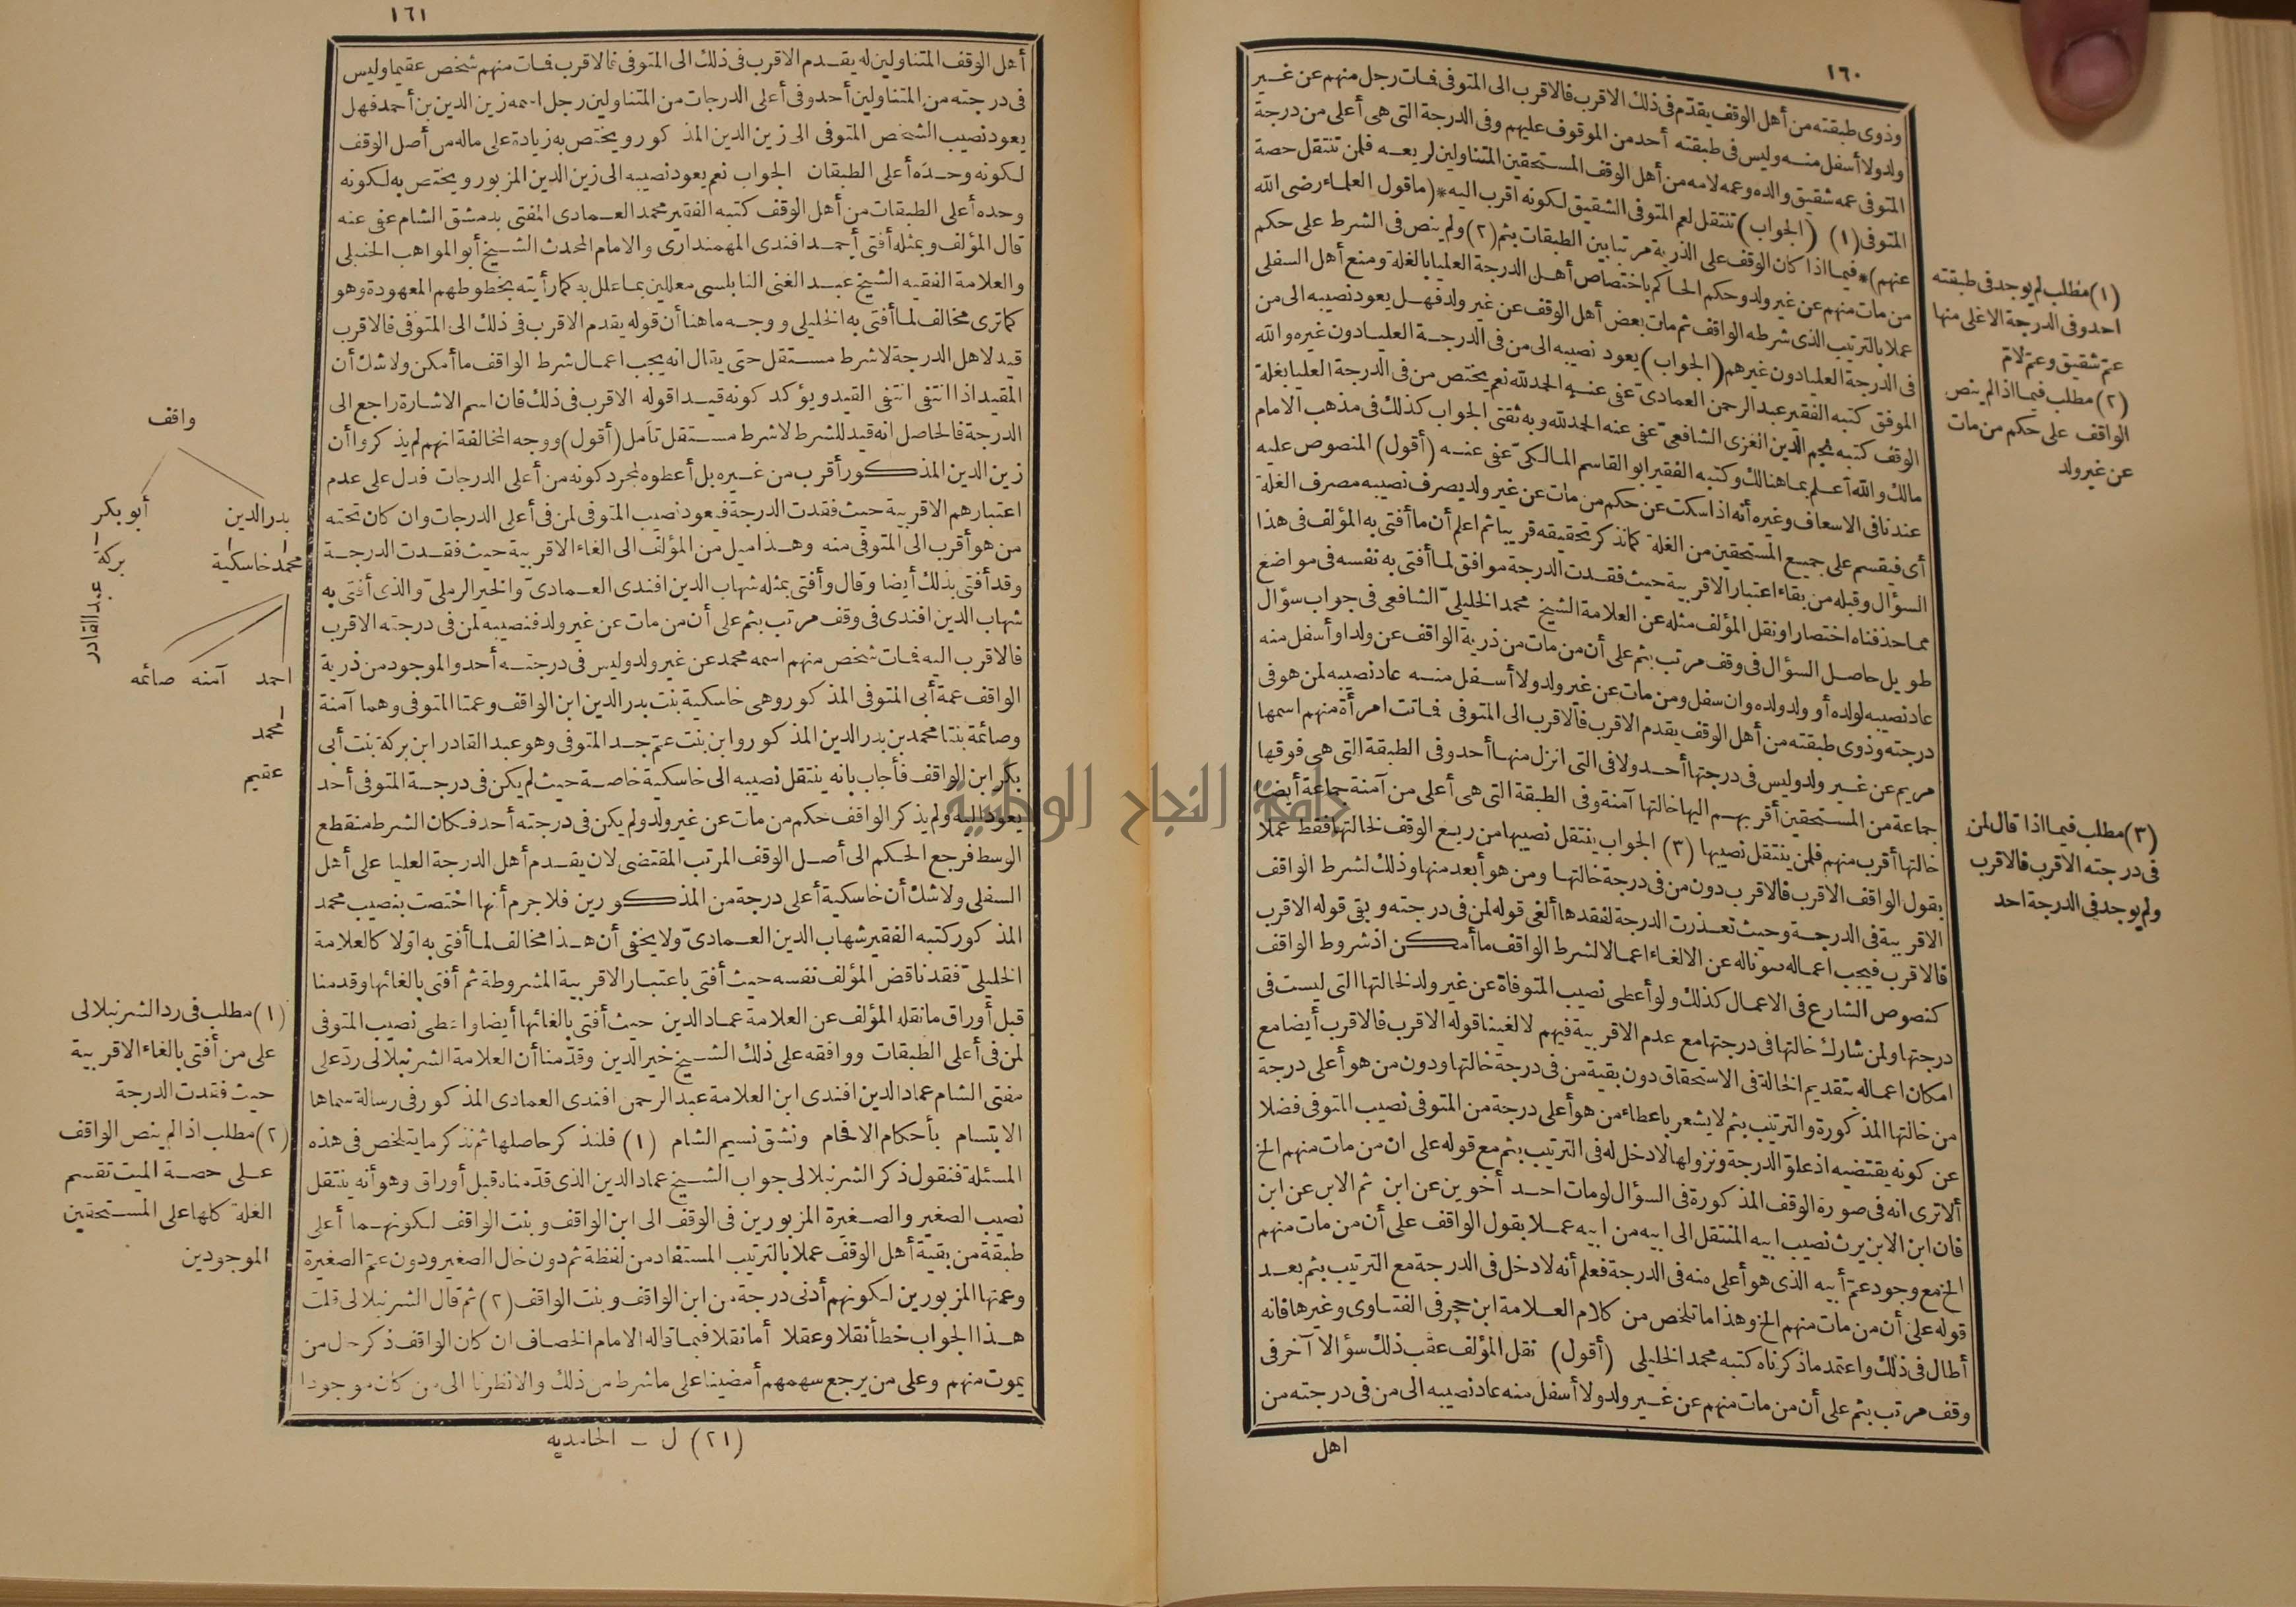 ١٦٠
وذوى طبقته من أهل الوقف يقدم فى ذلك الاقرب فالاقرب الى المتوفى فمات رجل منهم عن غير
ولد ولا أسفل منه وليس فى طبقته أحد من الموقوف عليهم وفى الدرجة التى هى أعلى من درجة
المتوفى عمه شقيق والده وعمه لامه من أهل الوقف المستحقين المتناولين لريعه فلمن تنتقل حصة
المتوفى (١) (الجواب) تنتقل لعم المتوفى الشقيق لكونه اقرب اليه * (ما قول العلماء رضى الله
عنهم) * فيما اذا كان الوقف على الذرية مرتبا بين الطبقات بثم (٢) ولم ينص فى الشرط على حكم
من مات منهم عن غير ولد وحكم الحاكم باختصاص أهل الدرجة العليا بالغلة ومنع أهل السفلى
عملا بالترتيب الذى شرطه الواقف ثم مات بعض أهل الوقف عن غير ولد فهل يعود نصيبه الى من
فى الدرجة العليا دون غيرهم (الجواب) يعود نصيبه الى من فى الدرجة العليا دون غيره والله
الموفق كتبه الفقير عبد الرحمن العمادى عفى عنه الحمد لله نعم يختص من فى الدرجة العليا بغلة
الوقف كتبه نجم الدين الغزى الشافعى عفى عنه الحمد لله وبه ثقتى الجواب كذلك فى مذهب الامام
مالك والله أعلم بما هنالك وكتبه الفقير ابو القاسم المالكى عفى عنه (أقول) المنصوص عليه
عندنا فى الاسعاف وغيره أنه اذا سكت عن حكم من مات عن غير ولد يصرف نصيبه مصرف الغلة
أى فيقسم على جميع المستحقين من الغلة كما نذكر تحقيقه قريبا ثم اعلم أن ما أفتى به المؤلف فى هذا
السؤال وقبله من بقاء اعتبار الاقربية حيث فقدت الدرجة موافق لما أفتى به نفسه فى مواضع
مما حذفناه اختصارا ونقل المؤلف مثله عن العلامة الشيخ محمد الخليلى الشافعى فى جواب سؤال
طويل حاصل السؤال فى وقف مرتب بثم على أن من مات من ذرية الواقف عن ولد او أسفل منه
عاد نصيبه لولده أو ولد ولده وان سفل ومن مات عن غير ولد ولا أسفل منه عاد نصيبه لمن هو فى
درجته وذوى طبقته من أهل الوقف يقدم الاقرب فالاقرب الى المتوفى فماتت امرأة منهم اسمها
مريم عن غير ولد وليس فى درجتها أحد ولا فى التى انزل منها أحد وفى الطبقة التى هى فوقها
جماعة من المستحقين أقربهم اليها خالتها آمنة وفى الطبقة التى هى أعلى من آمنة جماعة أيضا
خالتها أقرب منهم فلمن ينتقل نصيبها (٣) الجواب ينتقل نصيبها من ريع الوقف لخالتها فقط عملا
بقول الواقف الاقرب فالاقرب دون من فى درجة خالتها ومن هو أبعد منها وذلك لشرط الواقف
الاقربية فى الدرجة وحيث تعذرت الدرجة لفقدها ألغى قوله لمن فى درجته وبقى قوله الاقرب
فالاقرب فيجب اعماله صوناله عن الالغاء اعمالا لشرط الواقف ما أمكن اذ شروط الواقف
كنصوص الشارع فى الاعمال كذلك ولو أعطى نصيب المتوفاة عن غير ولد لخالتها التى ليست فى
درجتها ولمن شارك خالتها فى درجتها مع عدم الاقربية فيهم لالغينا قوله الاقرب فالاقرب أيضا مع
امكان اعماله بتقديم الخالة فى الاستحقاق دون بقية من فى درجة خالتها ودون من هو أعلى درجة
من خالتها المذكورة والترتيب بثم لا يشعر باعطاء من هو أعلى درجة من المتوفى نصيب المتوفى فضلا
عن كونه يقتضيه اذ علو الدرجة ونزولها لا دخل له فى الترتيب بثم مع قوله على ان من مات منهم الخ
ألا ترى انه فى صورة الوقف المذكورة فى السؤال لو مات احد أخوين عن ابن ثم الابن عن ابن
فان ابن الابن يرث نصيب ابيه المنتقل الى ابيه من ابيه عملا بقول الواقف على أن من مات منهم
الخ مع وجود عم أبيه الذى هو أعلى منه فى الدرجة فعلم أنه لا دخل فى الدرجة مع الترتيب بثم بعد
قوله على أن من مات منهم الخ وهذا ما تلخص من كلام العلامة ابن حجر فى الفتاوى وغيرها فانه
أطال فى ذلك واعتمد ما ذكرناه كتبه محمد الخليلى (أقول) نقل المؤلف عقب ذلك سؤالا آخر فى
وقف مرتب بثم على أن من مات منهم عن غير ولد ولا أسفل منه عاد نصيبه الى من فى درجته من
اهل
(١) مطلب لم يوجد فى طبقته
احد وفى الدرجة الاعلى منها
عم شقيق وعم لام
(٢) مطلب فيما اذا لم ينص
الواقف على حكم من مات
عن غير ولد
(٣) مطلب فيما اذا قال لمن
فى درجته الاقرب فالاقرب
ولم يوجد فى الدرجة احد
١٦١
أهل الوقف المتناولين له يقدم الاقرب فى ذلك الى المتوفى فالاقرب فمات منهم شخص عقيما وليس
فى درجته من المتناولين أحد وفى أعلى الدرجات من المتناولين رجل اسمه زين الدين بن أحمد فهل
يعود نصيب الشخص المتوفى الى زين الدين المذكور ويختص به زيادة على ماله من أصل الوقف
لكونه وحده أعلى الطبقات الجواب نعم يعود نصيبه الى زين الدين المزبور ويختص به لكونه
وحده أعلى الطبقات من أهل الوقف كتبه الفقير محمد العمادى المفتى بدمشق الشام عفى عنه
قال المؤلف وبمثله أفتى أحمد افندى المهمندارى والامام المحدث الشيخ أبو المواهب الحنبلى
والعلامة الفقيه الشيخ عبد الغنى النابلسى معللين بما علل به كما رأيته بخطوطهم المعهودة وهو
كما ترى مخالف لما أفتى به الخليلى ووجه ما هنا أن قوله يقدم الاقرب فى ذلك الى المتوفى فالاقرب
قيد لاهل الدرجة لا شرط مستقل حتى يقال انه يجب اعمال شرط الواقف ما أمكن ولا شك أن
المقيد اذا انتفى انتفى القيد ويؤكد كونه قيدا قوله الاقرب فى ذلك فان اسم الاشارة راجع الى
الدرجة فالحاصل انه قيد للشرط لا شرط مستقل تأمل (أقول) ووجه المخالفة انهم لم يذكروا أن
زين الدين المذكور أقرب من غيره بل أعطوه لمجرد كونه من أعلى الدرجات فدل على عدم
اعتبارهم الاقربية حيث فقدت الدرجة فيعود نصيب المتوفى لمن فى أعلى الدرجات وان كان تحته
من هو أقرب الى المتوفى منه وهذا ميل من المؤلف الى الغاء الاقربية حيث فقدت الدرجة
وقد أفتى بذلك أيضا وقال وأفتى بمثله شهاب الدين افندى العمادى والخير الرملى والذى أفتى به
شهاب الدين افندى فى وقف مرتب بثم على أن من مات عن غير ولد فنصيبه لمن فى درجته الاقرب
فالاقرب اليه فمات شخص منهم اسمه محمد عن غير ولد وليس فى درجته أحد والموجود من ذرية
الواقف عمة أبى المتوفى المذكور وهى خاسكية بنت بدر الدين ابن الواقف وعمتا المتوفى وهما آمنة
وصائمة بنتا محمد بن بدر الدين المذكور وابن بنت عم جد المتوفى وهو عبد القادر ابن بركة بنت أبى
بكر ابن الواقف فأجاب بانه ينتقل نصيبه الى خاسكية خاصة حيث لم يكن فى درجة المتوفى أحد
يعود اليه ولم يذكر الواقف حكم من مات عن غير ولد ولم يكن فى درجته أحد فكان الشرط منقطع
الوسط فرجع الحكم الى أصل الوقف المرتب المقتضى لان يقدم أهل الدرجة العليا على أهل
السفلى ولا شك أن خاسكية أعلى درجة من المذكورين فلا جرم أنها اختصت بنصيب محمد
المذكور كتبه الفقير شهاب الدين العمادى ولا يخفى أن هذا مخالف لما أفتى به اولا كالعلامة
الخليلى فقد ناقض المؤلف نفسه حيث أفتى باعتبار الاقربية المشروطة ثم أفتى بالغائها وقدمنا
قبل أوراق ما نقله المؤلف عن العلامة عماد الدين حيث أفتى بالغائها أيضا واعطى نصيب المتوفى
لمن فى أعلى الطبقات ووافقه على ذلك الشيخ خير الدين وقدمنا أن العلامة الشرنبلالى رد على
مفتى الشام عماد الدين افندى ابن العلامة عبد الرحمن افندى العمادى المذكور فى رسالة سماها
الابتسام بأحكام الافحام ونشق نسيم الشام (١) فلنذكر حاصلها ثم نذكر ما يتلخص فى هذه
المسئلة فنقول ذكر الشرنبلالى جواب الشيخ عماد الدين الذى قدمناه قبل أوراق وهو أنه ينتقل
نصيب الصغير والصغيرة المزبورين فى الوقف الى ابن الواقف وبنت الواقف لكونهما أعلى
طبقة من بقية أهل الوقف عملا بالترتيب المستفاد من لفظة ثم دون خال الصغير ودون عم الصغيرة
وعمتها المزبورين لكونهم أدنى درجة من ابن الواقف وبنت الواقف (٢) ثم قال الشرنبلالى قلت
هذا الجواب خطأ نقلا وعقلا أما نقلا فيما قاله الامام الخصاف ان كان الواقف ذكر حال من
يموت منهم وعلى من يرجع سهمهم أمضينا على ما شرط من ذلك والا نظرنا الى من كان موجودا
(٢١) ل ــ الحامديه
واقف
بدر الدين
أبو بكر
محمد خاسكية
بركة
عبد القادر
احمد آمنه صائمه
محمد
عقيم
(١) مطلب فى رد الشرنبلالى
على من أفتى بالغاء الاقربية
حيث فقدت الدرجة
(٢) مطلب اذا لم ينص الواقف
على حصة الميت تقسم
الغلة كلها على المستحقين
الموجودين
جامعة النجاح الوطنية